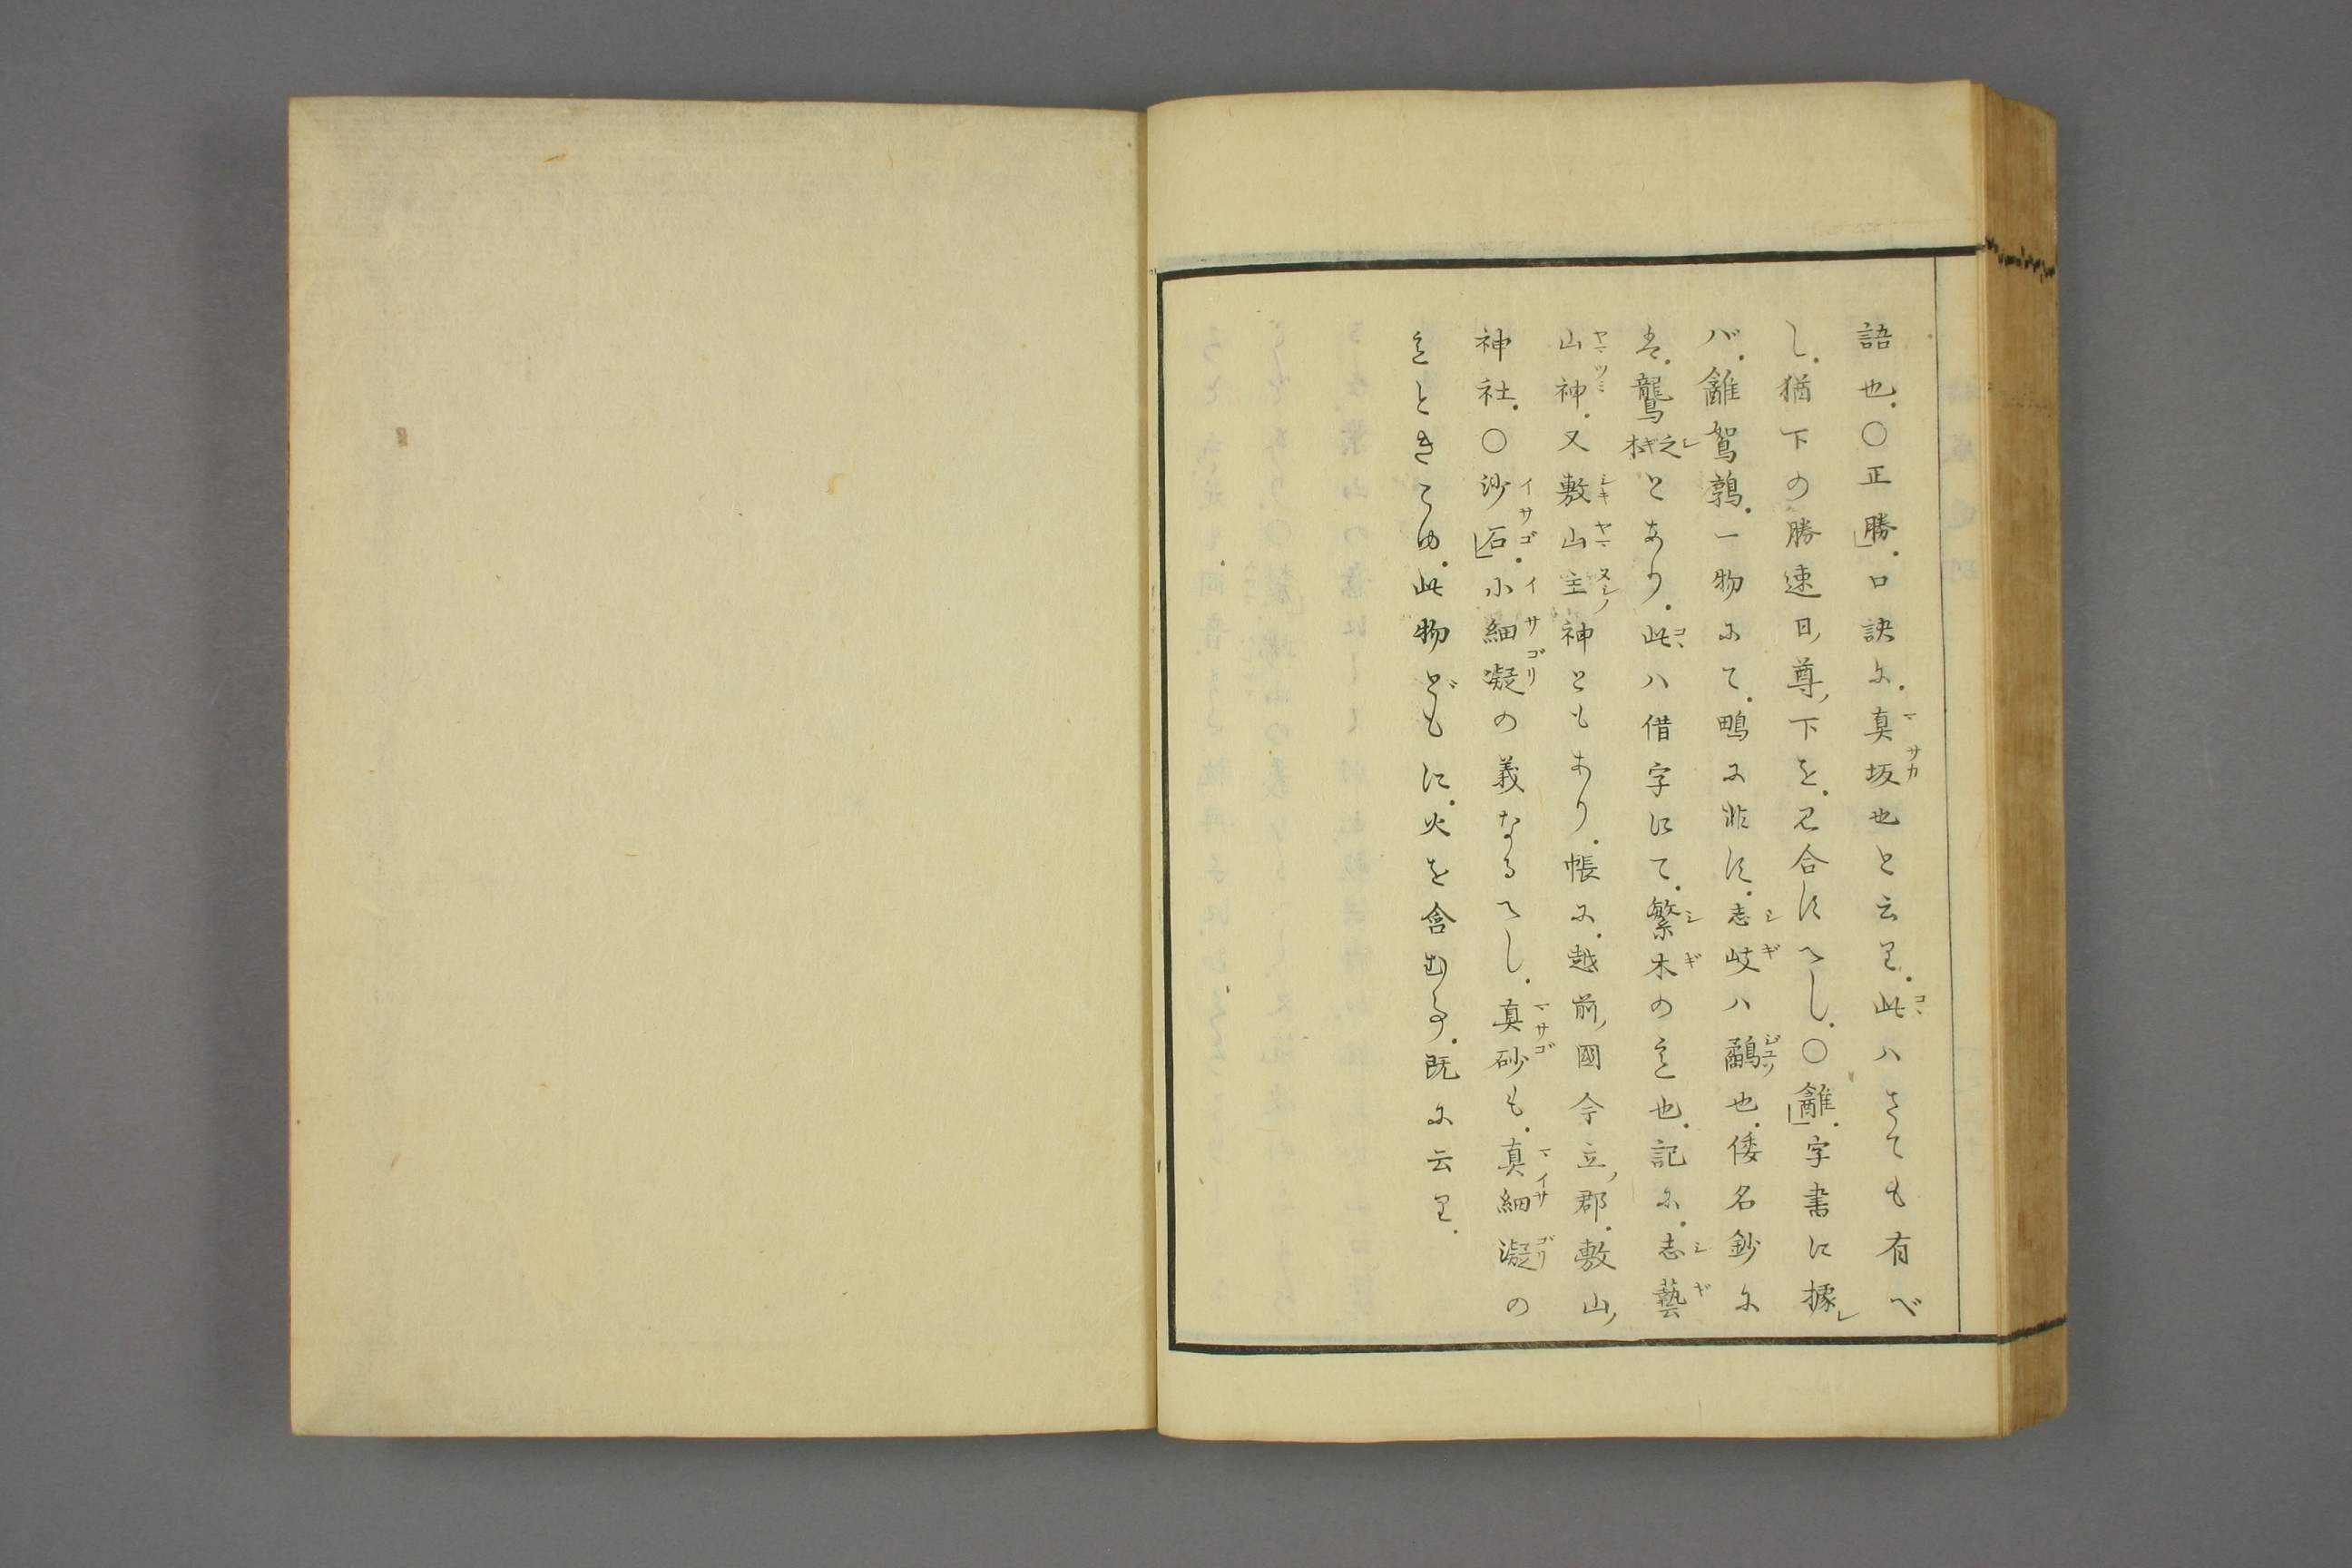 語也。〇正勝。口訣に。真坂也と云り。此ハさても有べ
し。猶下の勝速日尊下を。見合すへし。〇雜。字書に據レ
バ。雜鴽鶉。一物にて。鴫に非ず。志岐ハ鷸也。倭名鈔に
ハ。木之とあり。此ハ借字にて。繁木の意也。記に。志藝
山神。又敷山主神ともあり。帳に。越前國今立郡。敷山
神社。〇沙石。小細凝の義なるへし。真砂も。真細凝の
意ときこゆ。此物どもに。火を含める事。既に云り。